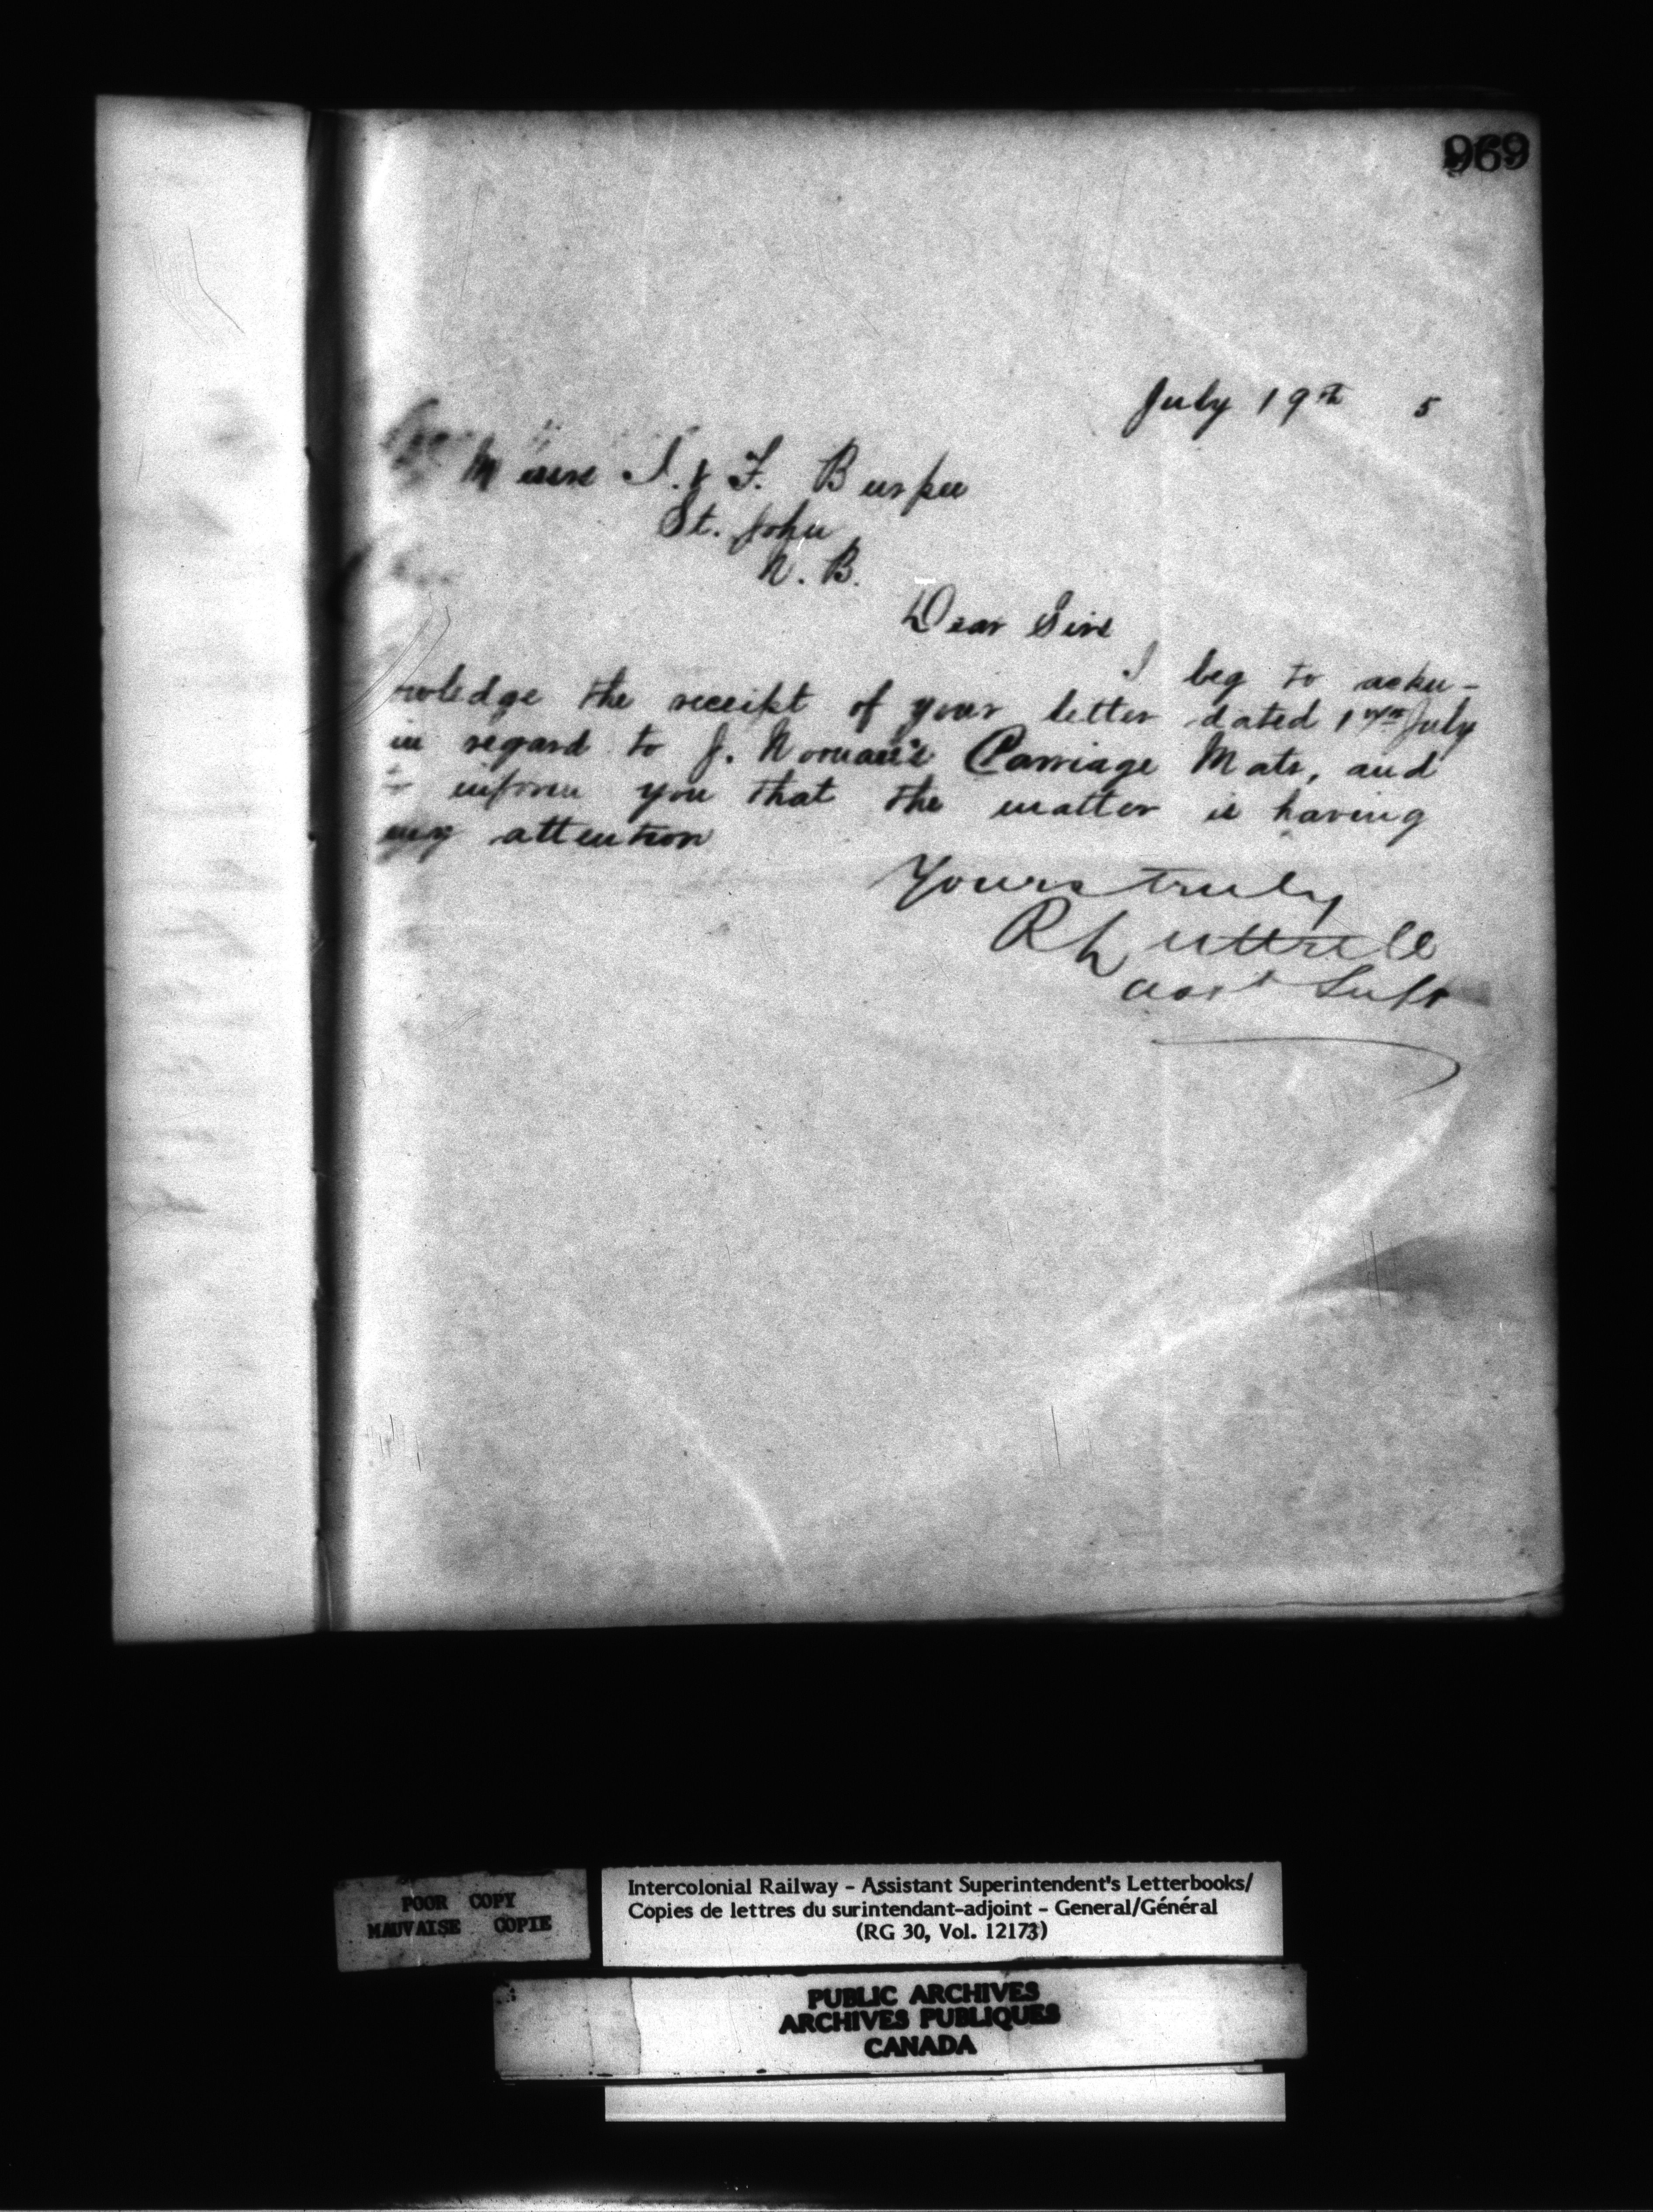 969
July 19th 5
Messrs I. & F. Burpee
St. John
N. B.
Dear Sirs
I beg to ackn-
owledge the receipt of your letter dated July
in regard to J. Norman's Carriage Mats, and
to inform you that the matter is having
my attention
Yours truly
R Luttrell
Asst Supt
POOR COPY
MAUVAISE COPIE
Intercolonial Railway - Assistant Superintendent's Letterbooks/
Copies de lettres du surintendant-adjoint - General/Général
(RG 30, Vol. 12173)
PUBLIC ARCHIVES
ARCHIVES PUBLIQUES
CANADA